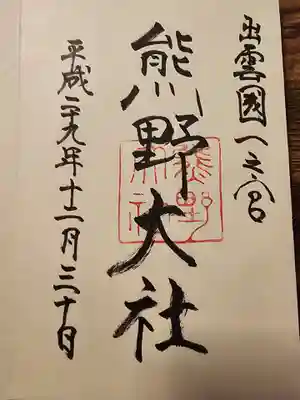 出雲國一之宮
熊野大社
平成二十九年十二月三十日